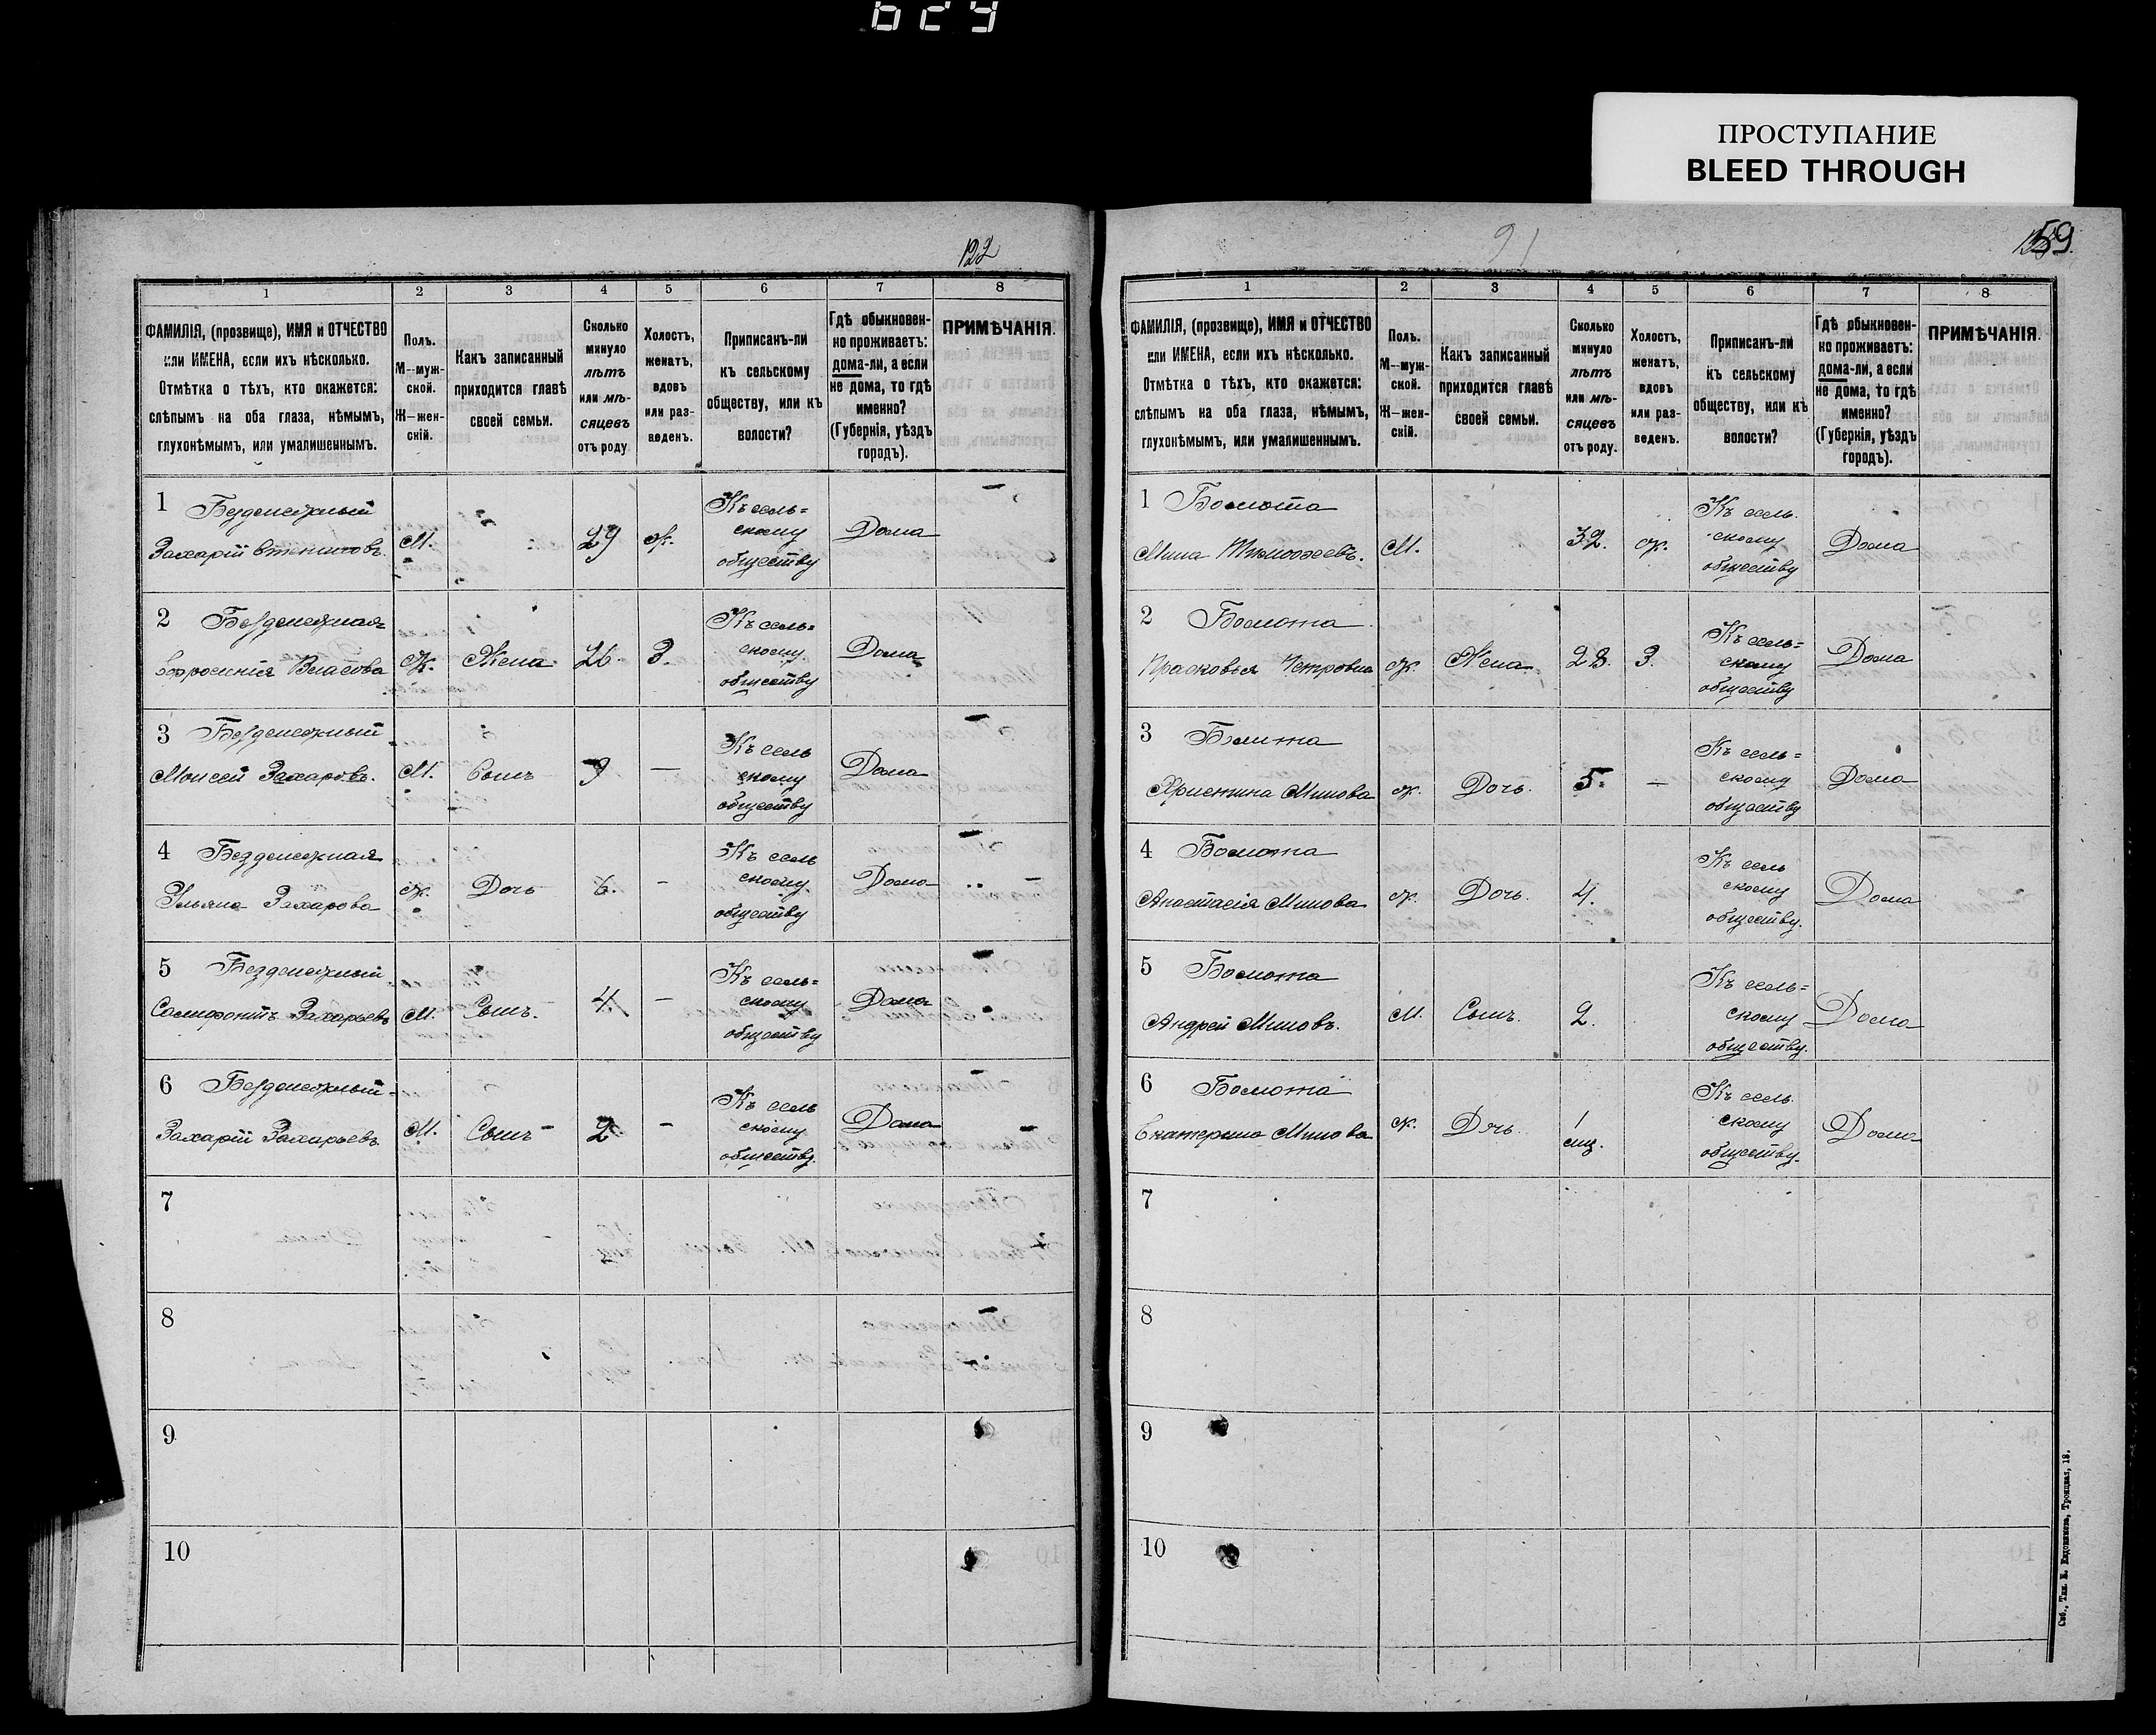 629
ПРОСТУПАНИЕ
BLEED THROUGH
122
1 2 3 4 5 6 7 8
ФАМИЛІЯ, (прозвище), ИМЯ и ОТЧЕСТВО
или ИМЕНА, если ихъ нѣсколько.
Отмѣтка о тѣхъ, кто окажется:
слѣпымъ на оба глаза, нѣмымъ,
глухонѣмымъ, или умалишеннымъ.
Полъ.
М—муж-
ской.
Ж—жен-
скій.
Какъ записанный
приходится главѣ
своей семьи.
Сколько
минуло
лѣтъ
или мѣ-
сяцевъ
отъ роду
Холостъ,
женатъ,
вдовъ
или раз-
веденъ.
Приписанъ-ли
къ сельскому
обществу, или къ
волости?
Гдѣ обыкновен-
но проживаетъ:
дома-ли, а если
не дома, то гдѣ
именно?
(Губернія, уѣздъ
городъ).
ПРИМѢЧАНІЯ.
1 Безденежный
Захарій М. 29 ж. Къ сель=
скому
обществу Дома
2 Безденежная
Ефросинія Власова Ж. Жена 26. З. Къ сель=
скому
обществу Дома
3 Безденежный
Моисей Захаровъ. М. Сынъ 9 — Къ сель
скому
обществу Дома
4 Безденежная
Ульяна Захарова ж. Дочь 6. - Къ сель
скому
обществу Дома
5 Безденежный
Захарьевъ М. Сынъ. 4 — Къ сель=
скому
обществу Дома
6 Безденежный
Захарій Захарьевъ М. Сынъ 2 - Къ сель
скому
обществу. Дома
7
8
9
10
91
59.
1 2 3 4 5 6 7 8
ФАМИЛІЯ, (прозвище), ИМЯ и ОТЧЕСТВО
или ИМЕНА, если ихъ нѣсколько.
Отмѣтка о тѣхъ, кто окажется:
слѣпымъ на оба глаза, нѣмымъ,
глухонѣмымъ, или умалишеннымъ.
Полъ.
М—муж-
ской.
Ж—жен-
скій.
Какъ записанный
приходится главѣ
своей семьи.
Сколько
минуло
лѣтъ
или мѣ-
сяцевъ
отъ роду.
Холостъ,
женатъ,
вдовъ
или раз-
веденъ.
Приписанъ-ли
къ сельскому
обществу, или къ
волости?
Гдѣ обыкновен-
но проживаетъ:
дома-ли, а если
не дома, то гдѣ
именно?
(Губернія, уѣздъ
городъ).
ПРИМѢЧАНІЯ.
1 Болота
Мина Тимофеевъ. М. 32. ж. Къ сель.
скому
обществу Дома
2 Болота
Прасковья Петровна ж. Жена 28. З. Къ сель=
скому
обществу Дома
3 Болота
Христина Минова ж. Дочь. 5. — Къ сель=
скому
обществу Дома
4 Болота
Анастасія Минова ж. Дочь. 4. Къ сель
скому
обществу. Дома
5 Болота
Андрей Миновъ. М. Сынъ. 2. Къ сель=
скому
обществу. Дома
6 Болота
Екатерина Минова ж. Дочь. 1
мц. Къ сель.
скому
обществу. Дома
7
8
9
10